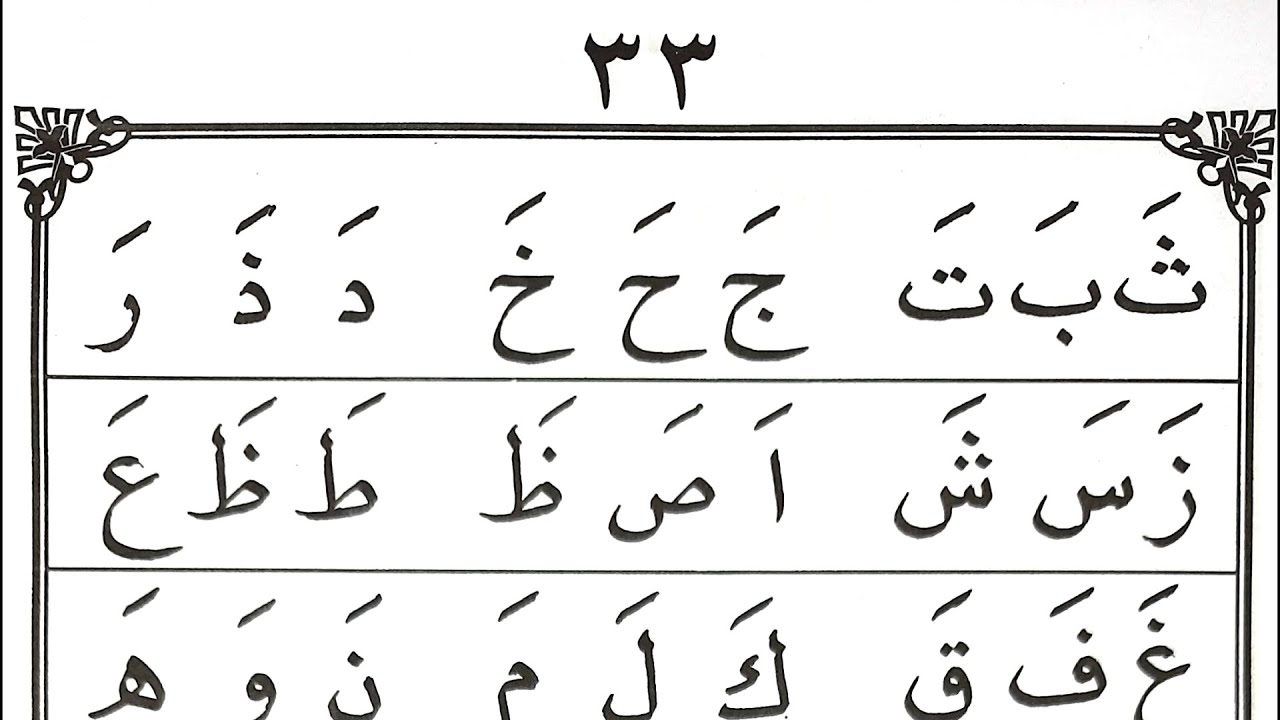 ٣٣
ثَ بَ تَ جَ حَ خَ دَ ذَ رَ
زَ سَ شَ اَ صَ ظَ طَ ظَ عَ
غَ فَ قَ كَ لَ مَ نَ وَ هَ